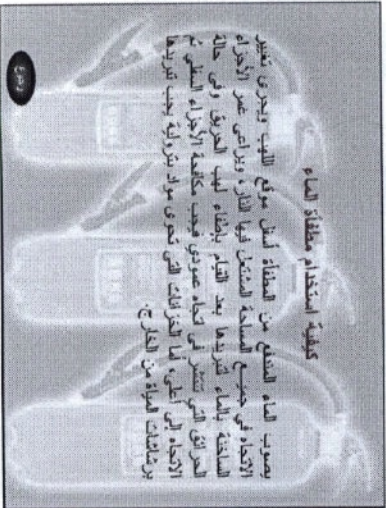 كيفية استخدام مطفأة الماء
يصوب الماء المندفع من المطفأة أسفل موقع اللهب ويجرى تغيير
الاتجاه في جميع المساحة المشتعل فيها النار، ويراعى غمر الأجزاء
الساخنة بالماء لتبريدها بعد القيام بإطفاء لهب الحريق وفى حالة
الحرائق التي تنتشر في اتجاه عمودي فيجب مكافحة الأجزاء السفلى ثم
الاتجاه إلى أعلى، أما الخزانات التى تحوى مواد بترولية يجب تبريدها
برشاشات المياة من الخارج.
رجوع